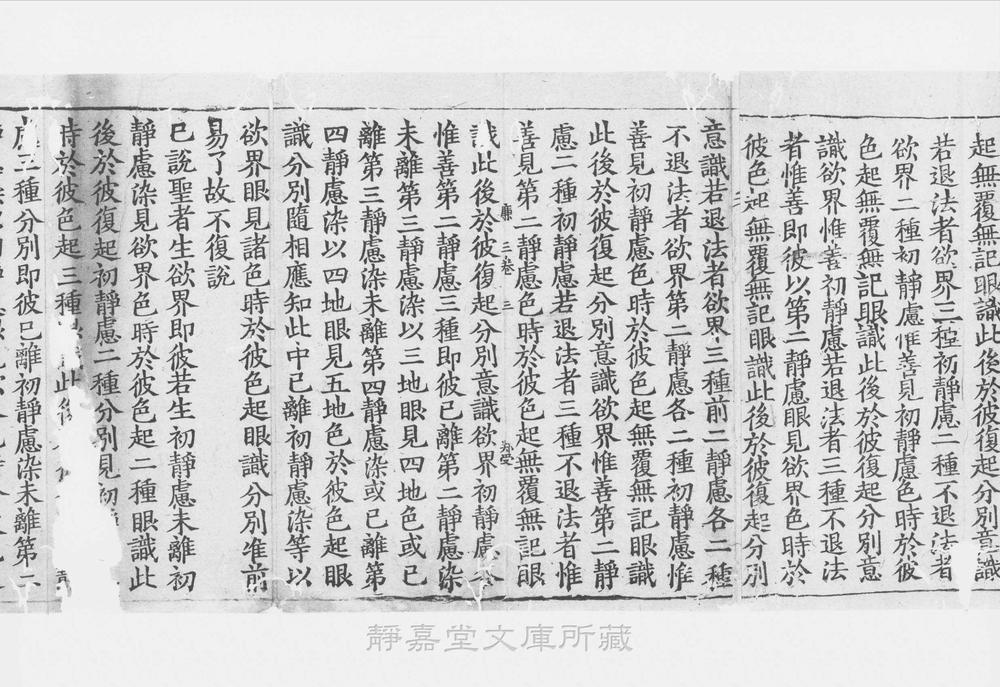 起無覆無記眼識此後於彼復起分別意識
若退法者欲界三種初靜慮二種不退法者
欲界二種初靜慮惟善見初靜慮色時於彼
色起無覆無記眼識此後於彼復起分別意
識欲界惟善初靜慮若退法者三種不退法
者惟善即彼以第二靜慮眼見欲界色時於
彼色起無覆無記眼識此後於彼復起分別
意識若退法者欲界三種前二靜慮各二種
不退法者欲界第二靜慮各二種初靜慮惟
善見初靜慮色時於彼色起無覆無記眼識
此後於彼復起分別意識欲界惟善第二靜
慮二種初靜慮若退法者三種不退法者惟
善見第二靜慮色時於彼色起無覆無記眼
廉 三卷 三
識此後於彼復起分別意識欲界初靜慮
惟善第二靜慮三種即彼已離第二靜慮染
未離第三靜慮染以三地眼見四地色或已
離第三靜慮染未離第四靜慮染或已離第
四靜慮染以四地眼見五地色於彼色起眼
識分別隨相應知此中已離初靜慮染等以
欲界眼見諸色時於彼色起眼識分別准前
易了故不復說
已說聖者生欲界即彼若生初靜慮未離初
靜慮染見欲界色時於彼色起二種眼識此
後於彼復起初靜慮二種分別見初
時於彼色起三種 此
三種分別即彼已離初靜慮染未離第二
靜嘉堂文庫所藏